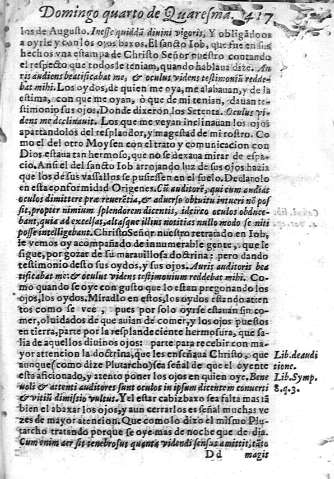 Domingo quarto de Quaresma. 417
los de Augusto. Inesse quiddã diuini vigoris. Y obligãdoos
a oyrle y con los ojos baxos. El sancto Iob, que fue en sus
hechos vna estampa de Christo Señor nuestro contando
el respecto que todos le tenian, quando hablaua dize. Au
ris audiens beatificabat me, & oculus videns testimoniũ redde
bat mihi. Los oydos, de quien me oya, me alabauan, y de la
estima, con que me oyan, ò que de mi tenian, dauan tes
timonio sus ojos. Donde dixeron los Setenta. Oculus vi
dens me declinauit. Los que me veyan inclinauan los ojos
apartandolos del resplandor, y magestad de mi rostro. Co
mo el del otro Moysen con el trato y comunicacion con
Dios estaua tan hermoso, que no se dexaua mirar de espa
cio. Ansi el del sancto Iob arrojando luz de sus ojos hazia
que los de sus vassallos se pusiessen en el suelo. Declarolo
en esta conformidad Origenes. Cũ auditore, qui cum audiat
oculos dimittere præ reuerẽtia, & aduerso obtuitu intueri nõ pos
sit, propter nimium splendorem dicentis, idcirco oculos obduce
bant, quia ad excelsas, altasque illius notitias nullo modo se niti
posse intelligebant. Christo Señor nuestro retratado en Iob,
le vemos oy acompañado de innumerable gente, que le
sigue, por gozar de su marauillosa doctrina: pero dando
testimonio desto sus oydos, y sus ojos. Auris auditoris bea
tificabat me: & oculus videns testimonium reddebat mihi. Co
mo quando se oye con gusto lo que estan pregonando los
ojos, los oydos. Miradlo en estos, los oydos estando aten
tos como se vee, pues por solo oyrle estauan sin co-
mer, oluidados de que auian de comer, y los ojos puestos
en tierra, parte por la resplandeciente hermosura, que sa-
lia de aquellos diuinos ojos: parte para recebir con ma-
yor attencion la doctrina, que les enseñaua Christo, que
aunque (como dize Plutarcho) sea señal de que el oyente
esta aficionado, y atento poner los ojos en quien oye. Bene
uoli & attenti auditores sunt oculos in ipsum dicentem conuerti
& vitiũ dimissio vultus. Y el estar cabizbaxo sea falta mas tã
bien el abaxar los ojos, y aun cerrarlos es señal muchas ve
zes de mayor atencion. Que como lo dixo el mismo Plu-
tarcho tratando porque se oye mas de noche que de dia.
Cum enim aer sit tenebrosus quanta videndi sensus amittit, tãto
Dd magis
Lib. de audi
tione.
Lib. Symp.
8. q. 3.